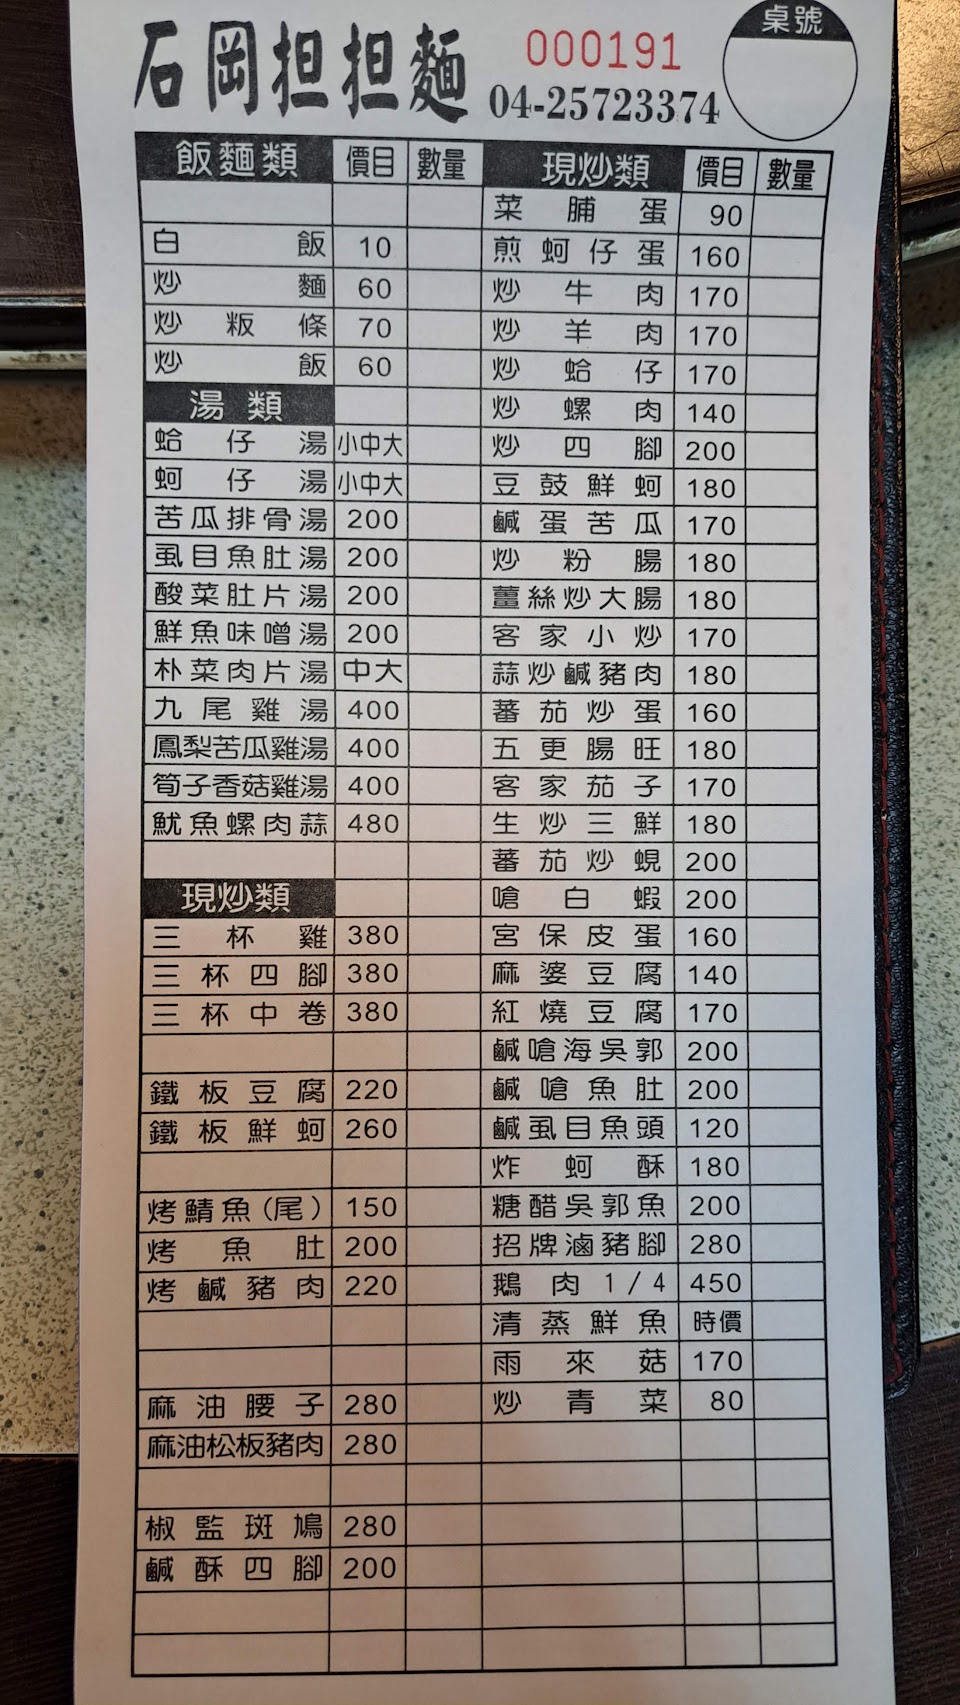 石岡担担麵
000191
04-25723374
桌號
飯麵類 價目 數量
白飯 10
炒麵 60
炒粄條 70
炒飯 60
湯類
蛤仔湯 小中大
蚵仔湯 小中大
苦瓜排骨湯 200
虱目魚肚湯 200
酸菜肚片湯 200
鮮魚味噌湯 200
朴菜肉片湯 中大
九尾雞湯 400
鳳梨苦瓜雞湯 400
筍子香菇雞湯 400
魷魚螺肉蒜 480
現炒類
三杯雞 380
三杯四腳 380
三杯中卷 380
鐵板豆腐 220
鐵板鮮蚵 260
烤鯖魚(尾) 150
烤魚肚 200
烤鹹豬肉 220
麻油腰子 280
麻油松板豬肉 280
椒監斑鳩 280
鹹酥四腳 200
現炒類 價目 數量
菜脯蛋 90
煎蚵仔蛋 160
炒牛肉 170
炒羊肉 170
炒蛤仔 170
炒螺肉 140
炒四腳 200
豆鼓鮮蚵 180
鹹蛋苦瓜 170
炒粉腸 180
薑絲炒大腸 180
客家小炒 170
蒜炒鹹豬肉 180
蕃茄炒蛋 160
五更腸旺 180
客家茄子 170
生炒三鮮 180
蕃茄炒蜆 200
嗆白蝦 200
宮保皮蛋 160
麻婆豆腐 140
紅燒豆腐 170
鹹嗆海吳郭 200
鹹嗆魚肚 200
鹹虱目魚頭 120
炸蚵酥 180
糖醋吳郭魚 200
招牌滷豬腳 280
鵝肉1/4 450
清蒸鮮魚 時價
雨來菇 170
炒青菜 80